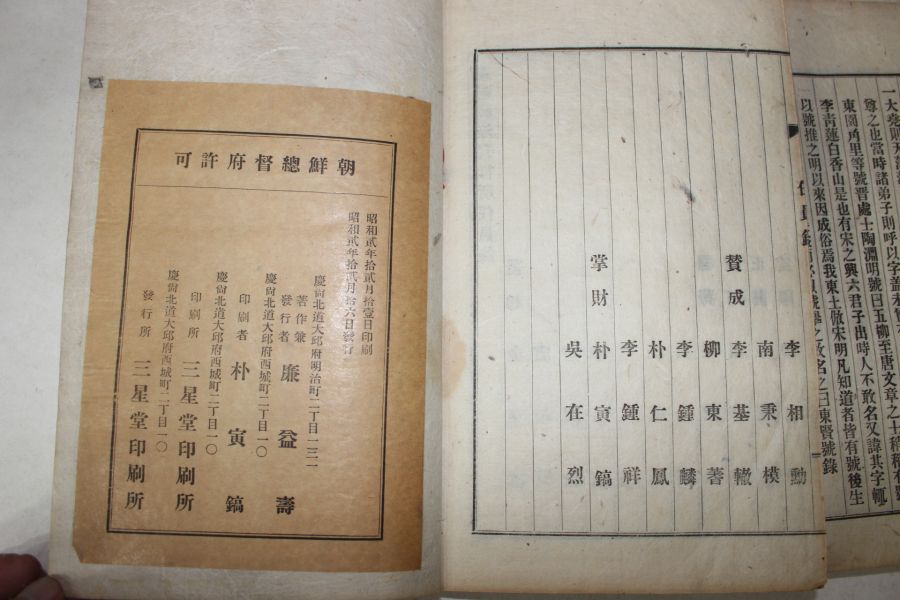 一大
尊之也當時諸弟子則呼以字蓋
東園角里等號晋處士陶淵明號曰五柳至唐文章之士稍稍有號
李靑蓮白香山是也有宋之興六君子出時人不敢名又諱其字輒
以號推之明以來因成俗焉我東士倣宋明凡知道者皆有號後生
之曰東賢號錄
李相勳
南秉模
贊成 李基轍
柳東著
李鍾麟
朴仁鳳
李鍾祥
掌財 朴寅鎬
吳在烈
朝鮮總督府許可
昭和貳年拾貳月拾壹日印刷
昭和貳年拾貳月拾六日發行
慶尙北道大邱府明治町二丁目一三一
著作兼發行者 廉益壽
慶尙北道大邱府西城町二丁目一〇
印刷者 朴寅鎬
慶尙北道大邱府西城町二丁目一〇
印刷所 三星堂印刷所
慶尙北道大邱府西城町二丁目一〇
發行所 三星堂印刷所